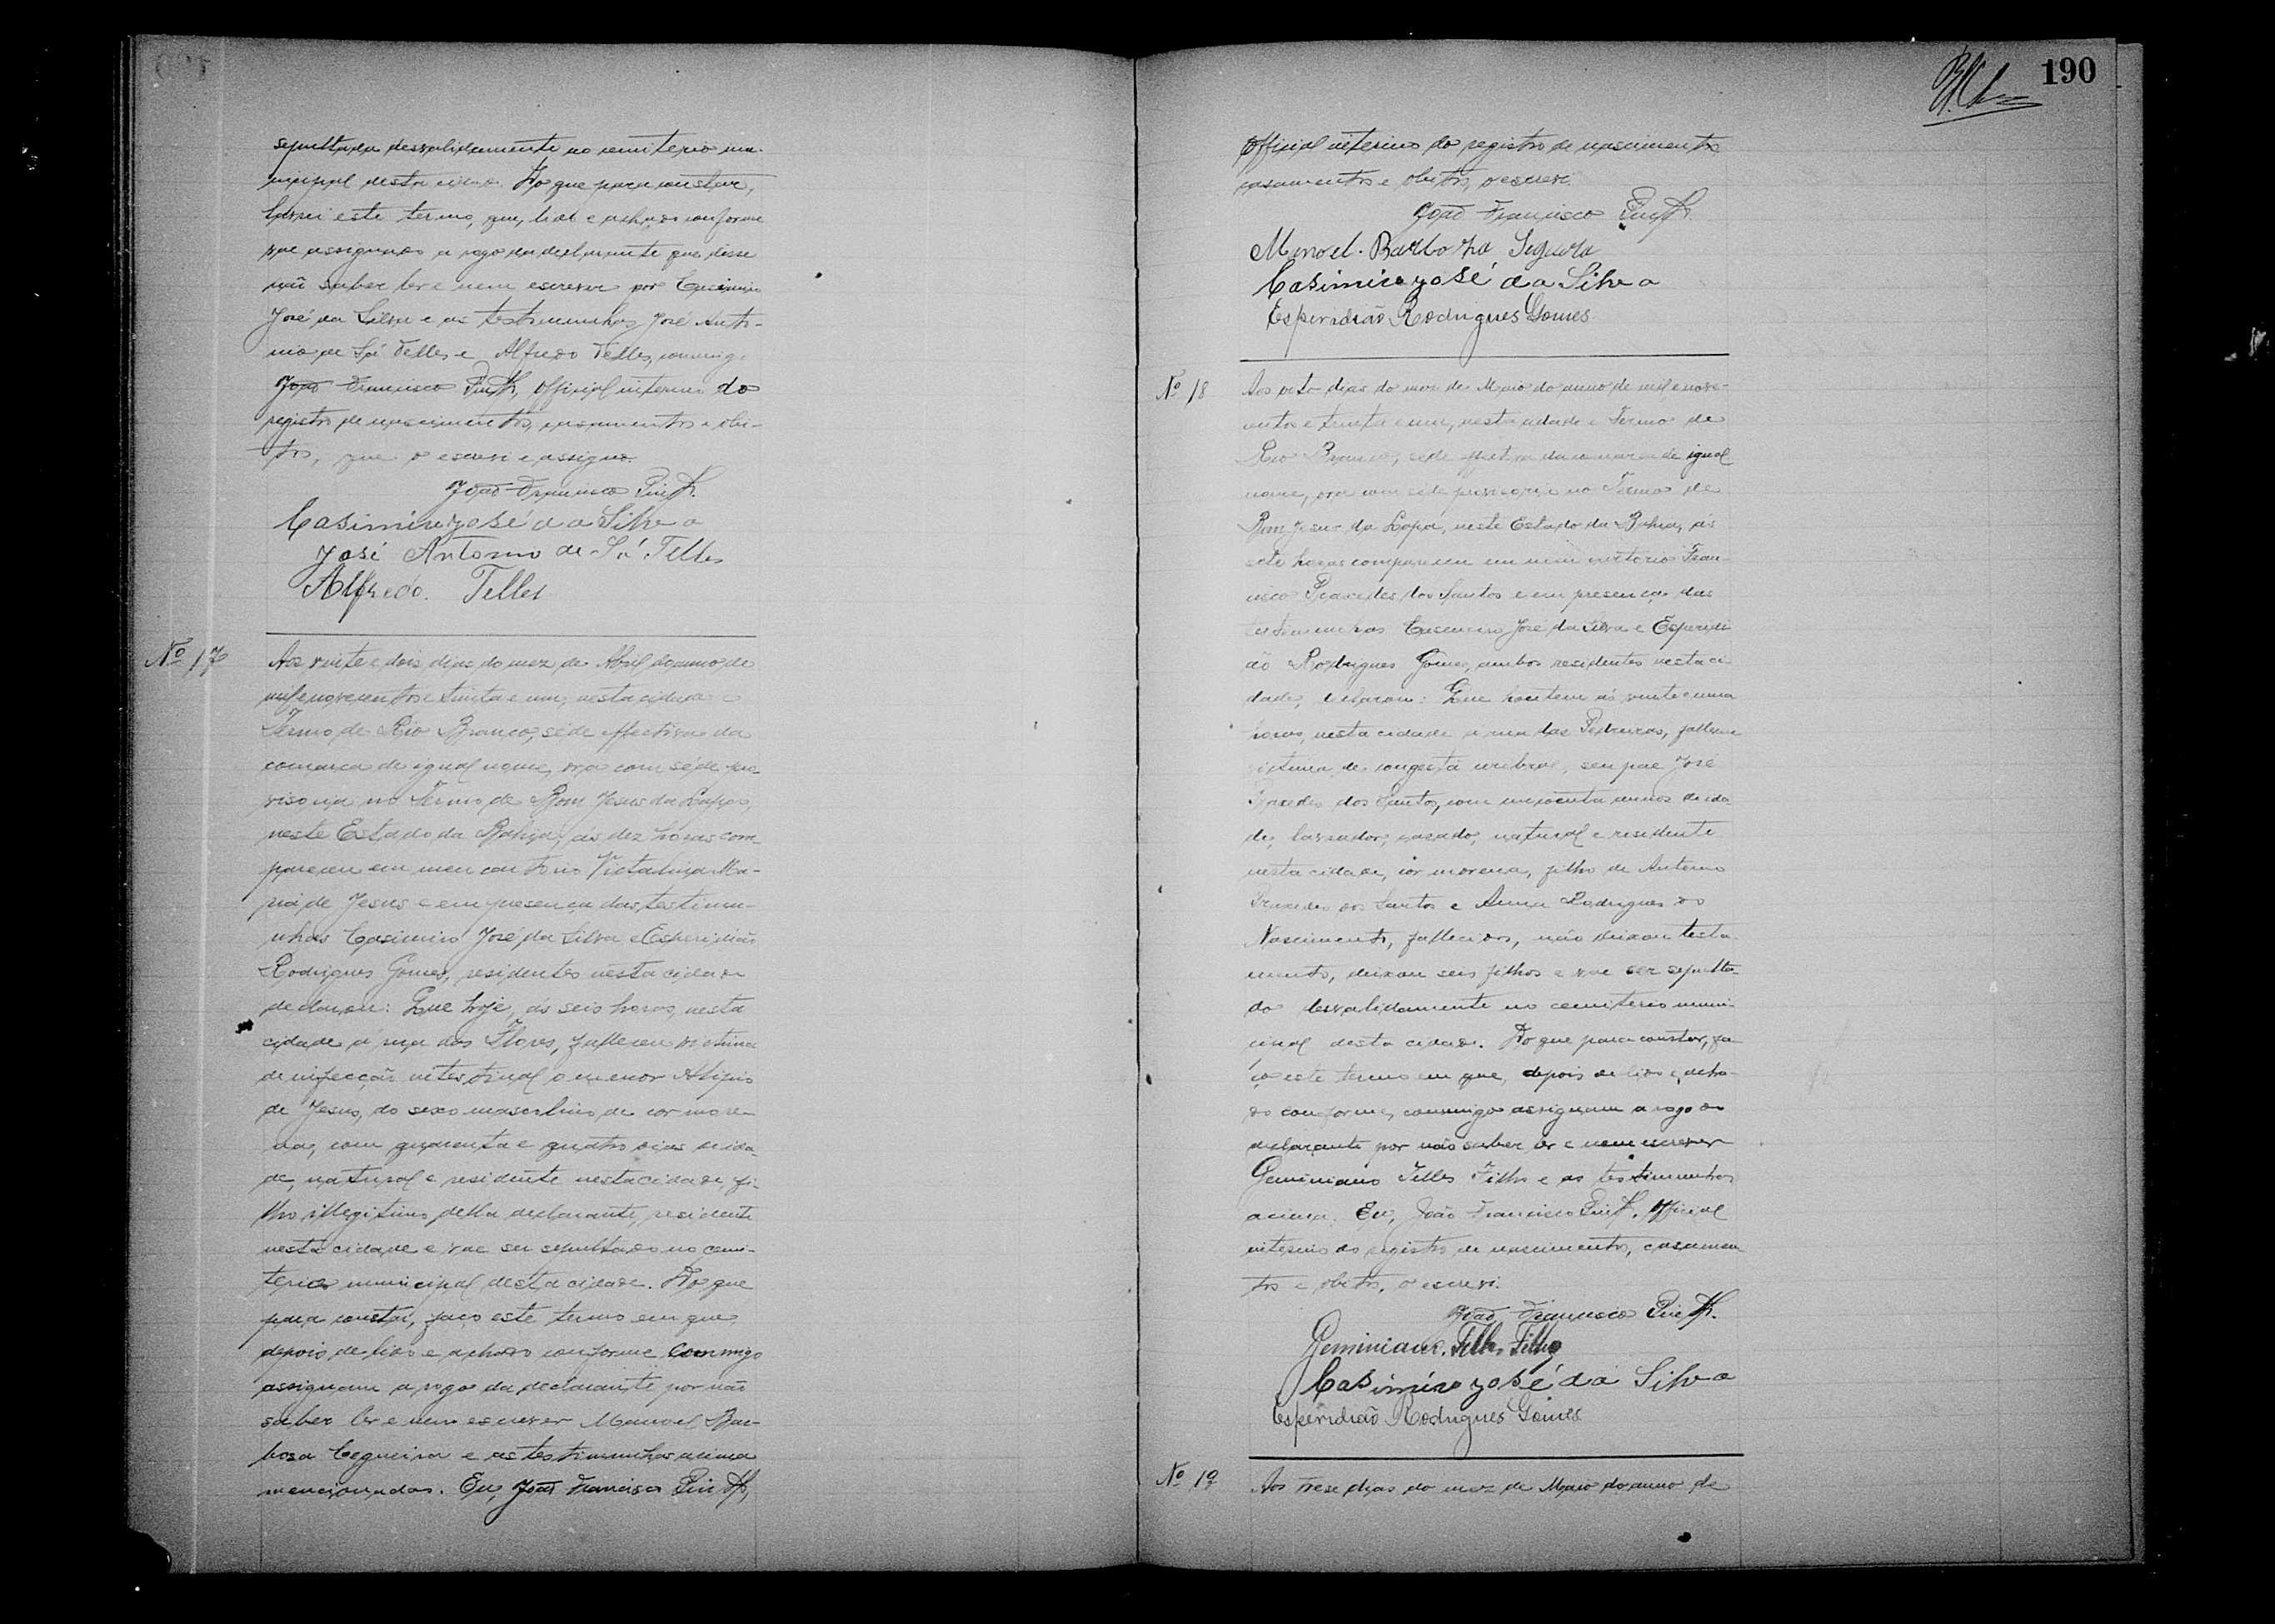 190
sepultada desvalidamente no cemiterio mu-
nicipal desta cidade. Do que para constar,
lavrei este termo, que, lido e achado conforme
vae assignado a rogo da declarante que disse
não saber ler e nem escrever por Casimiro
José da Silva e as testemunhas José Anto-
nio de Sá Telles e Alfredo Telles, commigo
João Francisco Official interino do
registro de nascimentos, casamentos e obi-
tos, que o escrevi e assigno.
João Francisco
Casimiro José da Silva
José Antonio de Sá Telles
Alfredo. Telles
Nº 17
Aos vinte e dois dias do mez de Abril do anno de
mil e novecentos e trinta e um, nesta cidade e
Termo de Rio Branco, séde effectiva da
comarca de igual nome, ora com séde pro-
visoria no Termo de Bom Jesus da Lapa,
neste Estado da Bahia, ás dez horas com-
pareceu em meu cartorio Victalina Ma-
ria de Jesus e em presença das testemu-
nhas Casimiro José da Silva e Esperidião
Rodrigues Gomes, residentes nesta cidade
declarou: Que hoje, ás seis horas, nesta
cidade á rua das Flores, falleceu victima
de infecção intestinal o menor Alipio
de Jesus, do sexo masculino de cor more-
na, com quarenta e quatro dias de ida-
de, natural e residente nesta cidade, fi-
lho illegitimo della declarante, residente
nesta cidade e vae ser sepultado no cemi-
terio municipal desta cidade. Do que
para constar, faço este termo em que,
depois de lido e achado conforme commigo
assignam a rogo da declarante por não
saber ler e nem escrever Manoel Bar-
bosa Cegueira e as testemunhas acima
mencionadas. Eu, João Francisco
Official interino do registro de nascimentos
casamentos e obitos, o escrevi.
João Francisco
Manoel. Barboza Segueira
Casimiro José da Silva
Esperidião Rodrigues Gomes
Nº 18
Aos oito dias do mez de Maio do anno de mil e nove-
centos e trinta e um, nesta cidade e Termo de
Rio Branco, séde effectiva da comarca de igual
nome, ora com séde provisoria no Termo de
Bom Jesus da Lapa, neste Estado da Bahia, ás
sete horas compareceu em meu cartorio Fran-
cisco Praxedes dos Santos e em presença das
testemunhas Casemiro José da Silva e Esperidi-
ão Rodrigues Gomes, ambos residentes nesta ci-
dade, declarou: Que hontem ás vinte e uma
horas, nesta cidade á rua das Pedreiras, falleceu
victima de congestão cerebral, seu pae José
Praxedes dos Santos, com cincoenta annos de ida-
de, lavrador, casado, natural e residente
nesta cidade, cor morena, filho de Antonio
Praxedes dos Santos e Anna Rodrigues do
Nascimento, fallecidos, não deixou testa-
mento, deixou seis filhos e vae ser sepulta-
do desvalidamente no cemiterio muni-
cipal desta cidade. Do que para constar, fa-
ço este termo em que, depois de lido e acha-
do conforme, commigo assignam a rogo do
declarante por não saber ler e nem escrever
Geminiano Telles Filho e as testemunhas
acima. Eu, João Francisco Official
interino do registro de nascimentos, casamen-
tos e obitos, o escrevi.
João Francisco
Geminiano. Telles Filho
Casimiro José da Silva
Esperidião Rodrigues Gomes
Nº 19
Aos treze dias do mez de Maio do anno de